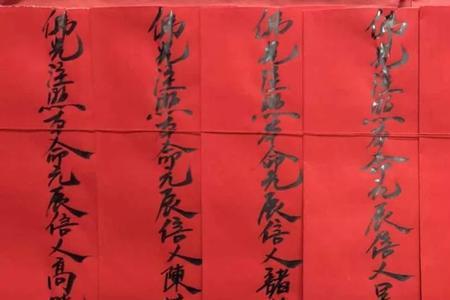 佛光注照本命元辰信人
佛光注照本命元辰信人諸
佛光注照本命元辰信人陳
佛光注照本命元辰信人高